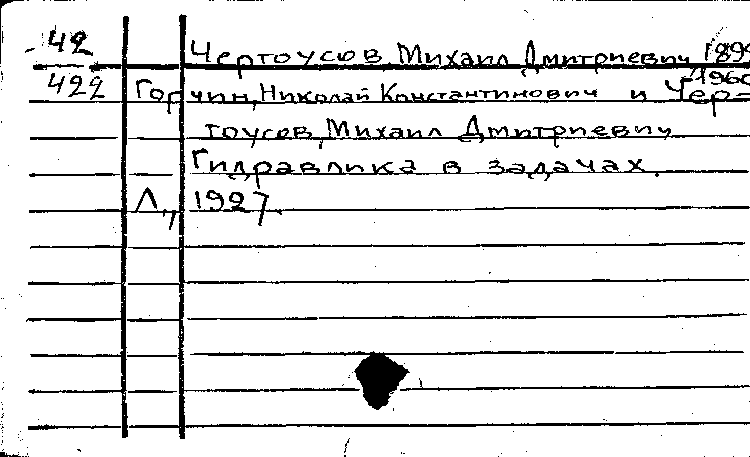 42 Чертоусов, Михаил Дмитриевич 189
422 Горчин, Николай Константинович и Чер- 1960
тоусов, Михаил Дмитриевич
Гидравлика в задачах.
Л., 1927.